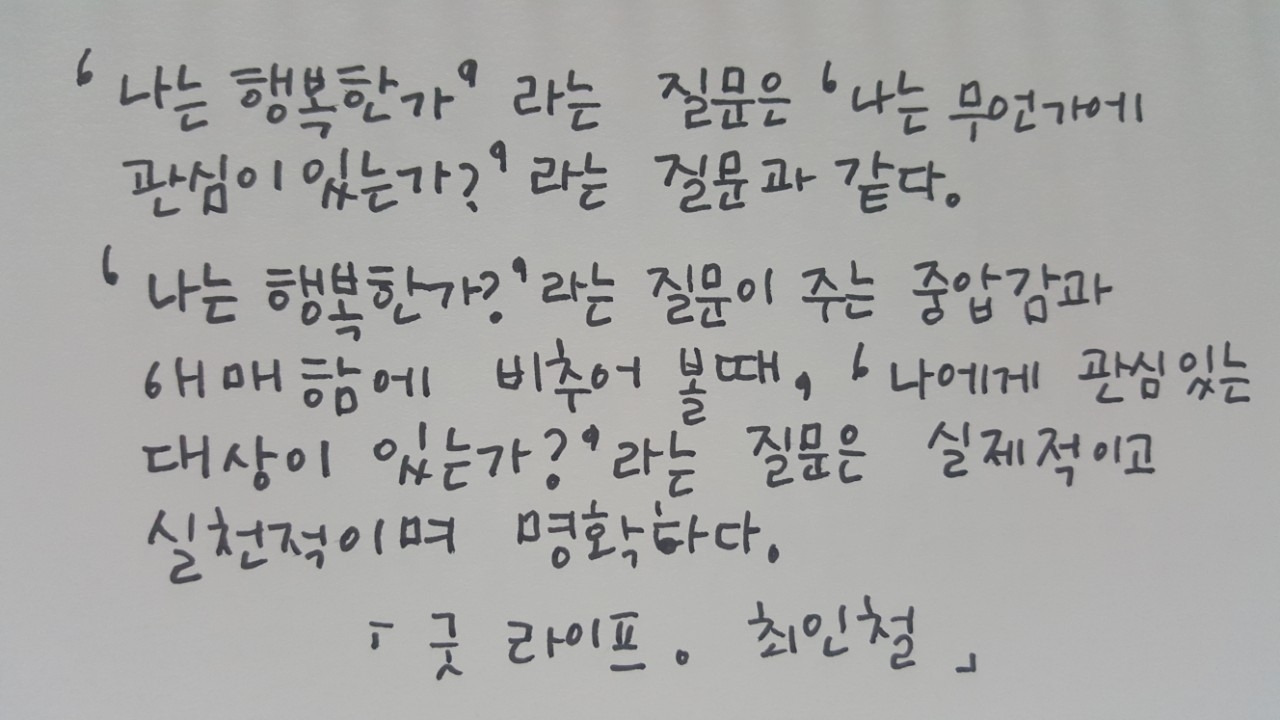 '나는 행복한가' 라는 질문은 '나는 무언가에
관심이 있는가?' 라는 질문과 같다.
'나는 행복한가?' 라는 질문이 주는 중압감과
애매함에 비추어 볼때, '나에게 관심있는
대상이 있는가?' 라는 질문은 실제적이고
실천적이며 명확하다.
「굿 라이프. 최인철」